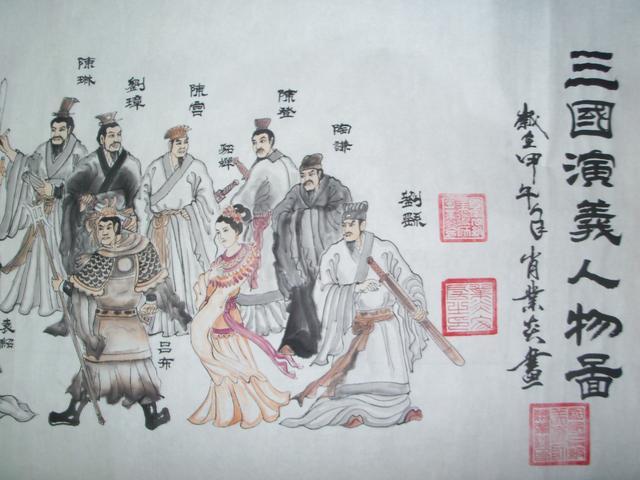 三國演義人物啚
甲午年肖業炎畫
劉繇
陶謙
陳登
貂蟬
陳宮
劉璋
陳琳
呂布
袁紹